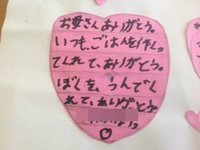 お母さんありがとう。
いつも、ごはんを作っ
てくれて、ありがとう。
ぼくを、うんでく
れて、ありがとう。